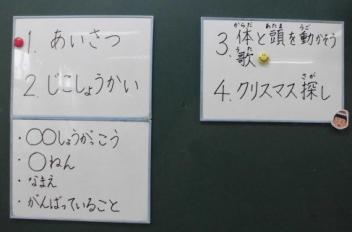 1. あいさつ
2. じこしょうかい
・〇〇しょうがっこう
・〇ねん
・なまえ
・がんばっていること
3. 体と頭を動かそう
歌
4. クリスマス探し